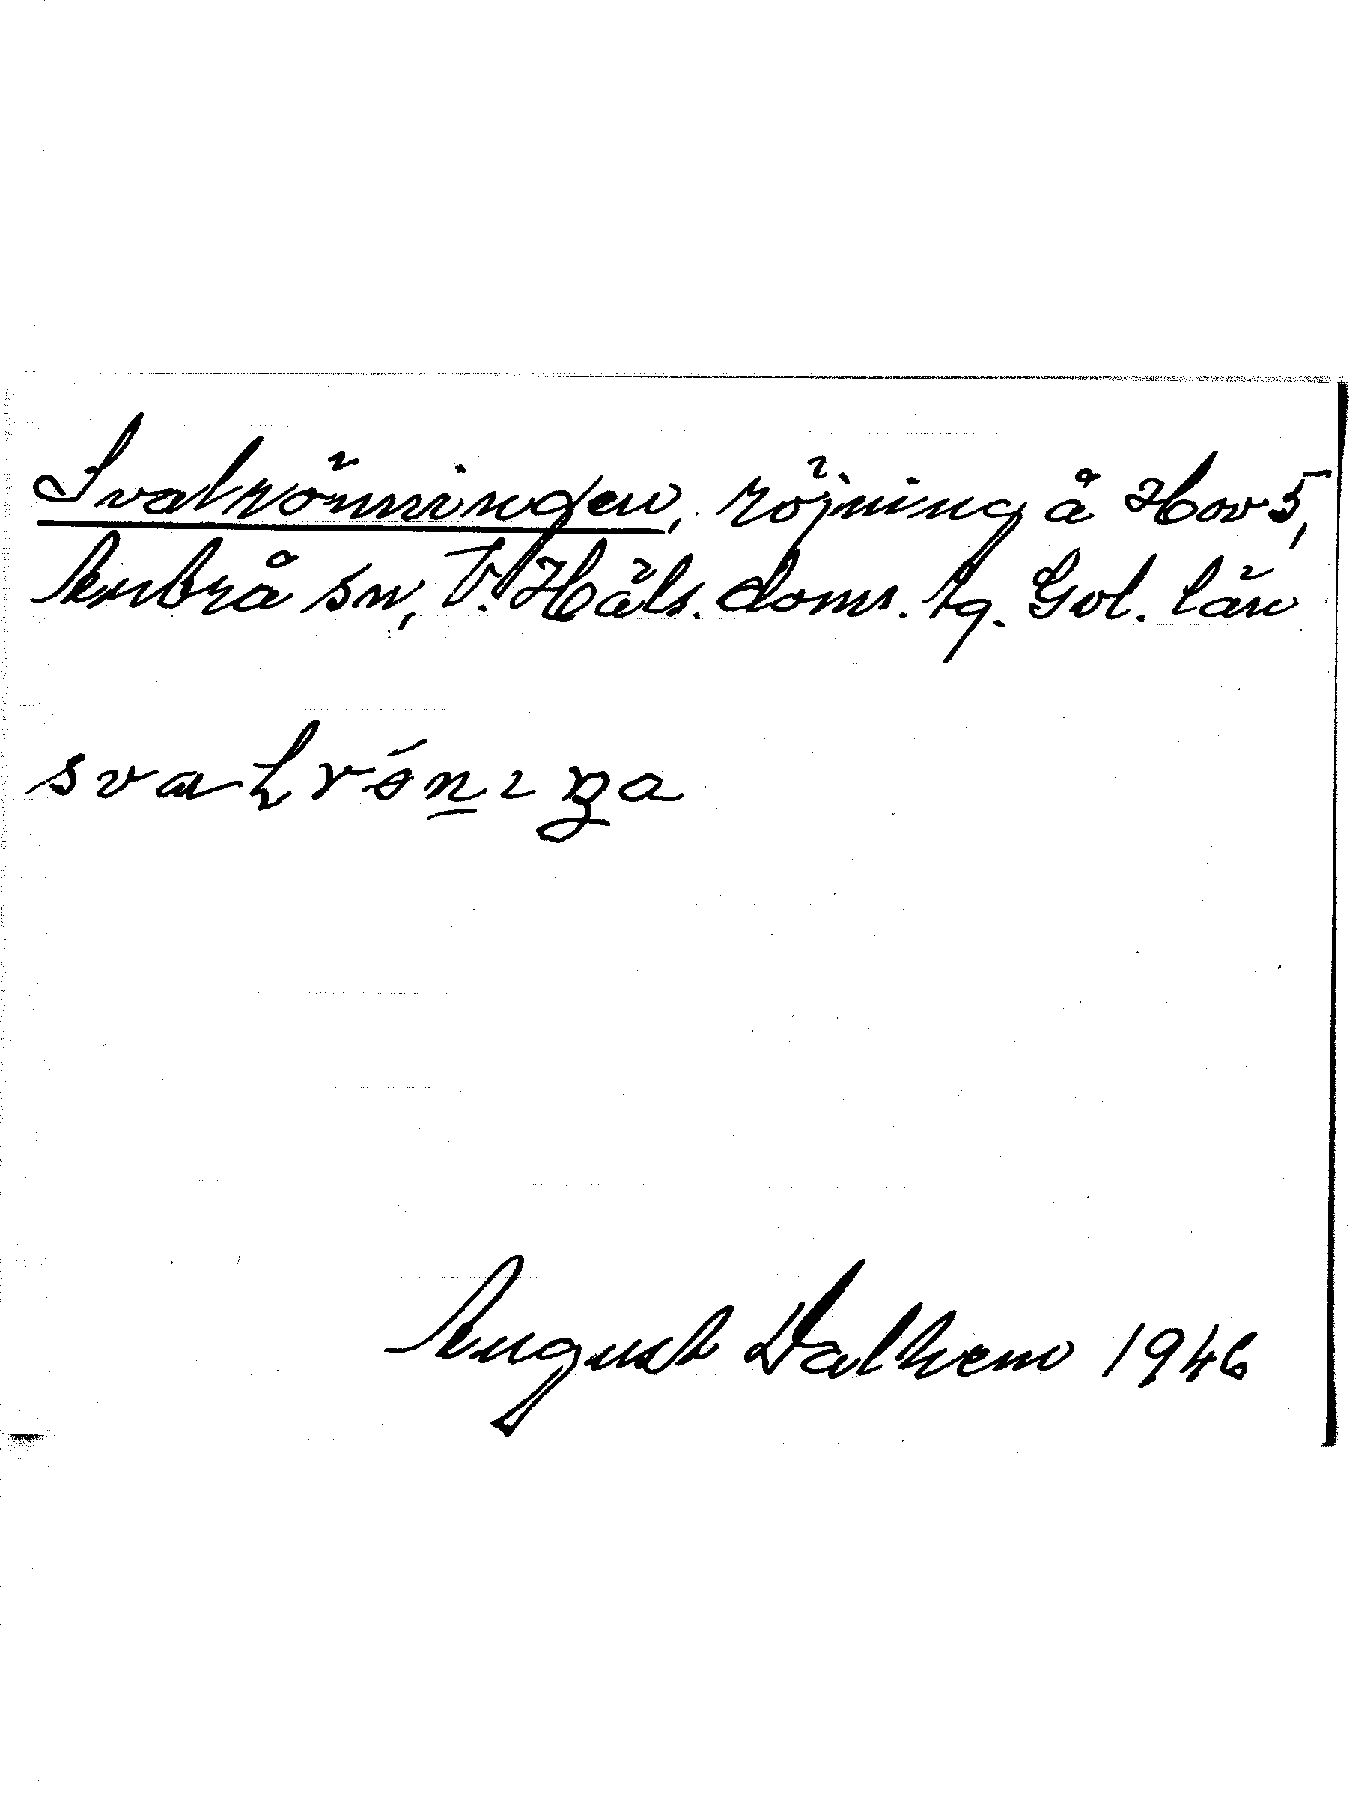 Svalrönningen, röjning å Hov 5,
Arbrå sn, V. Häls. doms. tg. Gvl. län
svaLrǿnıŋa
August Dalhem 1946